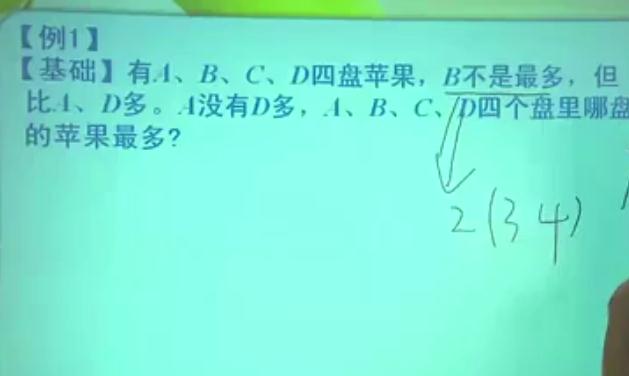 【例1】
【基础】有A、B、C、D四盘苹果，B不是最多，但
比A、D多。A没有D多，A、B、C、D四个盘里哪盘
的苹果最多?
2(3 4)